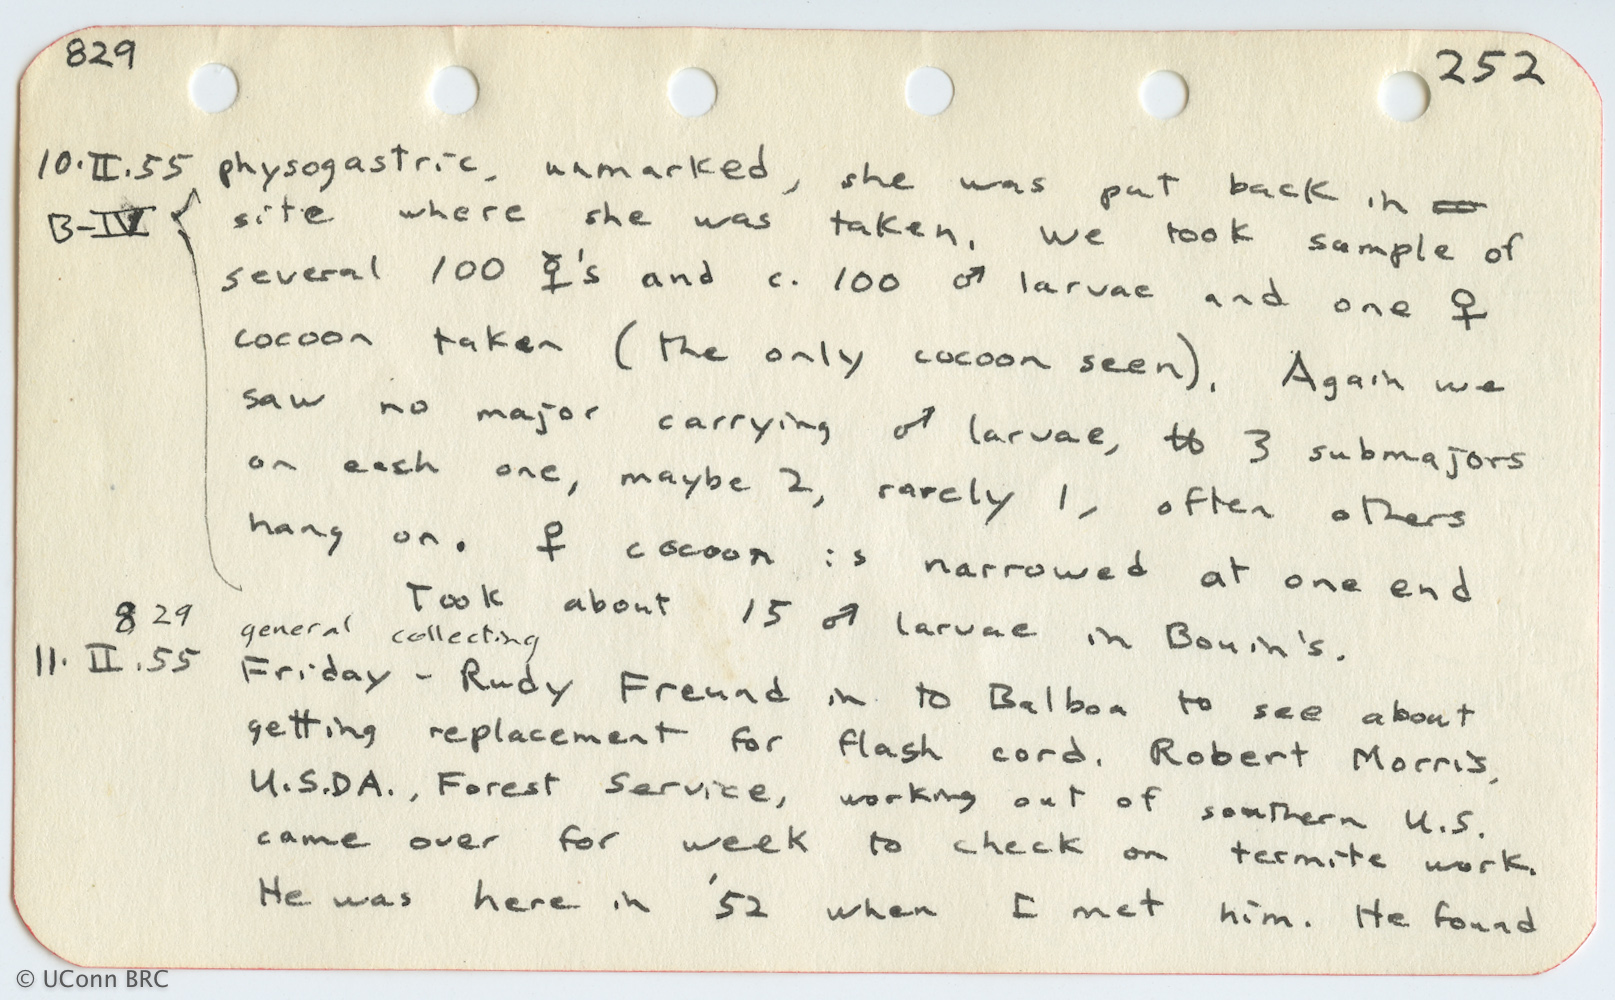 829
252
10.II.55 physogastric, unmarked, she was put back in
B-IV { site where she was taken. We took sample of
several 100 ☿'s and c. 100 ♂ larvae and one ♀
cocoon taken (the only cocoon seen). Again we
saw no major carrying ♂ larvae, 3 submajors
on each one, maybe 2, rarely 1, often others
hang on. ♀ cocoon is narrowed at one end
Took about 15 ♂ larvae in Bouin's.
829 general collecting
11.II.55 Friday - Rudy Freund in to Balboa to see about
getting replacement for flash cord. Robert Morris,
U.S.D.A., Forest Service, working out of southern U.S.
came over for week to check on termite work.
He was here in '52 when I met him. He found
© UConn BRC